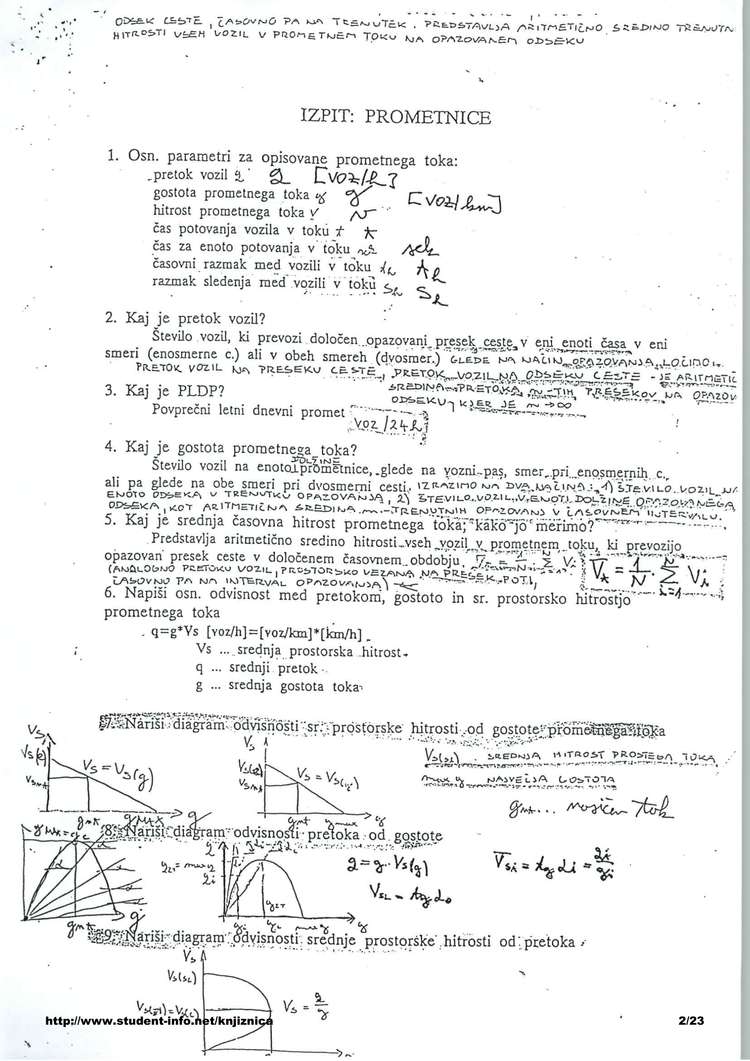 ODSEK CESTE, ČASOVNO PA NA TRENUTEK. PREDSTAVLJA ARITMETIČNO SREDINO TRENUTN
HITROSTI VSEH VOZIL V PROMETNEM TOKU NA OPAZOVANEM ODSEKU
IZPIT: PROMETNICE
1. Osn. parametri za opisovane prometnega toka:
pretok vozil q q [VOZ/h]
gostota prometnega toka g g [VOZ/km]
hitrost prometnega toka v v
čas potovanja vozila v toku t t
čas za enoto potovanja v toku
časovni razmak med vozili v toku th th
razmak sledenja med vozili v toku Sh Sh
2. Kaj je pretok vozil?
Število vozil, ki prevozi določen opazovani presek ceste v eni enoti časa v eni
smeri (enosmerne c.) ali v obeh smereh (dvosmer.) GLEDE NA NAČIN OPAZOVANJA LOČIMO:
PRETOK VOZIL NA PRESEKU CESTE, PRETOK VOZIL NA ODSEKU CESTE - JE ARITMETIČ
3. Kaj je PLDP? SREDINA PRETOKA m-TIH PRESEKOV NA OPAZOV
Povprečni letni dnevni promet ODSEKU, KJER JE m → ∞
[VOZ/24h]
4. Kaj je gostota prometnega toka?
Število vozil na enoto DOLŽINE prometnice, glede na vozni pas, smer pri enosmernih c.
ali pa glede na obe smeri pri dvosmerni cesti. IZRAZIMO NA DVA NAČINA: 1) ŠTEVILO VOZIL NA
ENOTO ODSEKA V TRENUTKU OPAZOVANJA, 2) ŠTEVILO VOZIL V ENOTI DOLŽINE OPAZOVANEGA
ODSEKA, KOT ARITMETIČNA SREDINA m-TRENUTNIH OPAZOVANJ V ČASOVNEM INTERVALU.
5. Kaj je srednja časovna hitrost prometnega toka, kako jo merimo?
Predstavlja aritmetično sredino hitrosti vseh vozil v prometnem toku, ki prevozijo
opazovan presek ceste v določenem časovnem obdobju. V̄t = 1/N · Σ Vi
(ANALOGNO PRETOKU VOZIL, PROSTORSKO VEZANA NA PRESEK POTI,
ČASOVNO PA NA INTERVAL OPAZOVANJA)
6. Napiši osn. odvisnost med pretokom, gostoto in sr. prostorsko hitrostjo
prometnega toka
q=g*Vs [voz/h]=[voz/km]*[km/h]
Vs ... srednja prostorska hitrost
q ... srednji pretok
g ... srednja gostota toka
7. Nariši diagram odvisnosti sr. prostorske hitrosti od gostote prometnega toka
Vs
Vs = Vs(g)
g
Vs
Vs = Vs(g)
g max
Vs(sL) SREDNJA HITROST PROSTEGA TOKA
max g NAJVEČJA GOSTOTA
gmt... mosičen tok
8. Nariši diagram odvisnosti pretoka od gostote
q = g · Vs(g)
V̄si = tg αi = qi/gi
VsL = tg α0
9. Nariši diagram odvisnosti srednje prostorske hitrosti od pretoka
Vs
Vs(sL)
Vs = q/g
http://www.student-info.net/knjiznica
2/23